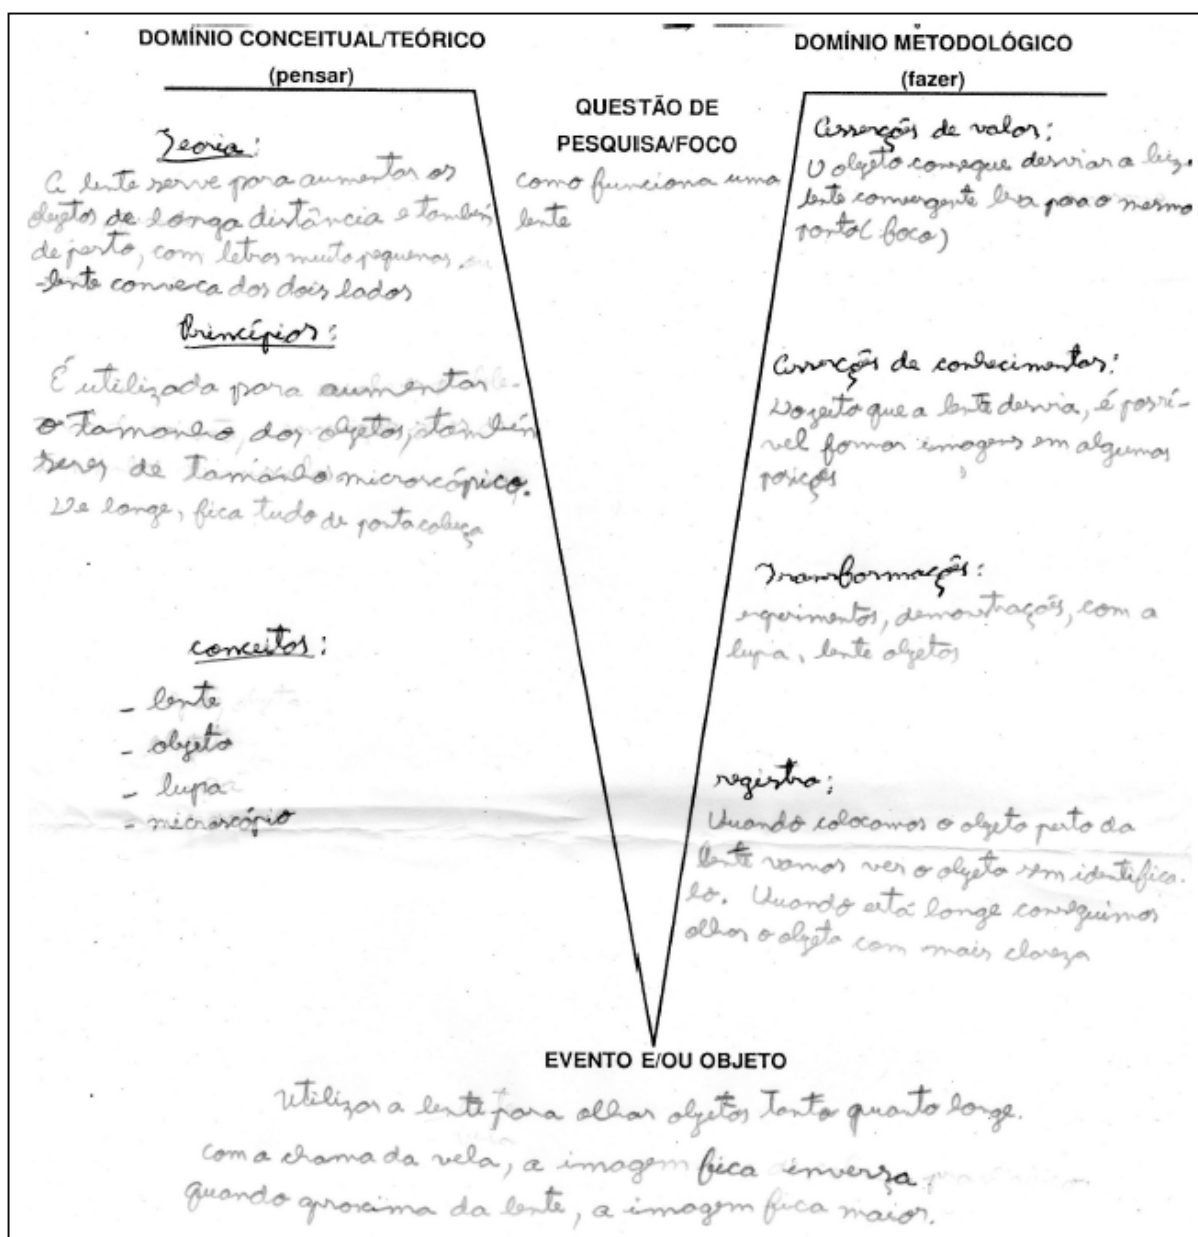 DOMÍNIO CONCEITUAL/TEÓRICO
(pensar)
Teoria:
A lente serve para aumentar os
objetos de longa distância e também
de perto, com letras muito pequenas
-lente conveca dos dois lados
Princípios:
É utilizada para aumentar
o tamanho, dos objetos, também
seres de tamanho microscópico.
De longe, fica tudo de ponta cabeça
conceitos:
- lente
- objeto
- lupa
- microscópio
QUESTÃO DE
PESQUISA/FOCO
como funciona uma
lente
DOMÍNIO METODOLÓGICO
(fazer)
Asserções de valor:
O objeto consegue desviar a luz.
lente convergente leva para o mesmo
ponto (foco)
Asserções de conhecimentos:
Do jeito que a lente desvia, é possí-
vel formar imagens em algumas
posições
Transformações:
experimentos, demonstrações, com a
lupa, lente objetos
registro:
Quando colocamos o objeto perto da
lente vamos ver o objeto sem identifica-
lo. Quando está longe conseguimos
olhar o objeto com mais clareza
EVENTO E/OU OBJETO
Utilizar a lente para olhar objetos tanto quanto longe.
com a chama da vela, a imagem fica inversa
quando aproxima da lente, a imagem fica maior.